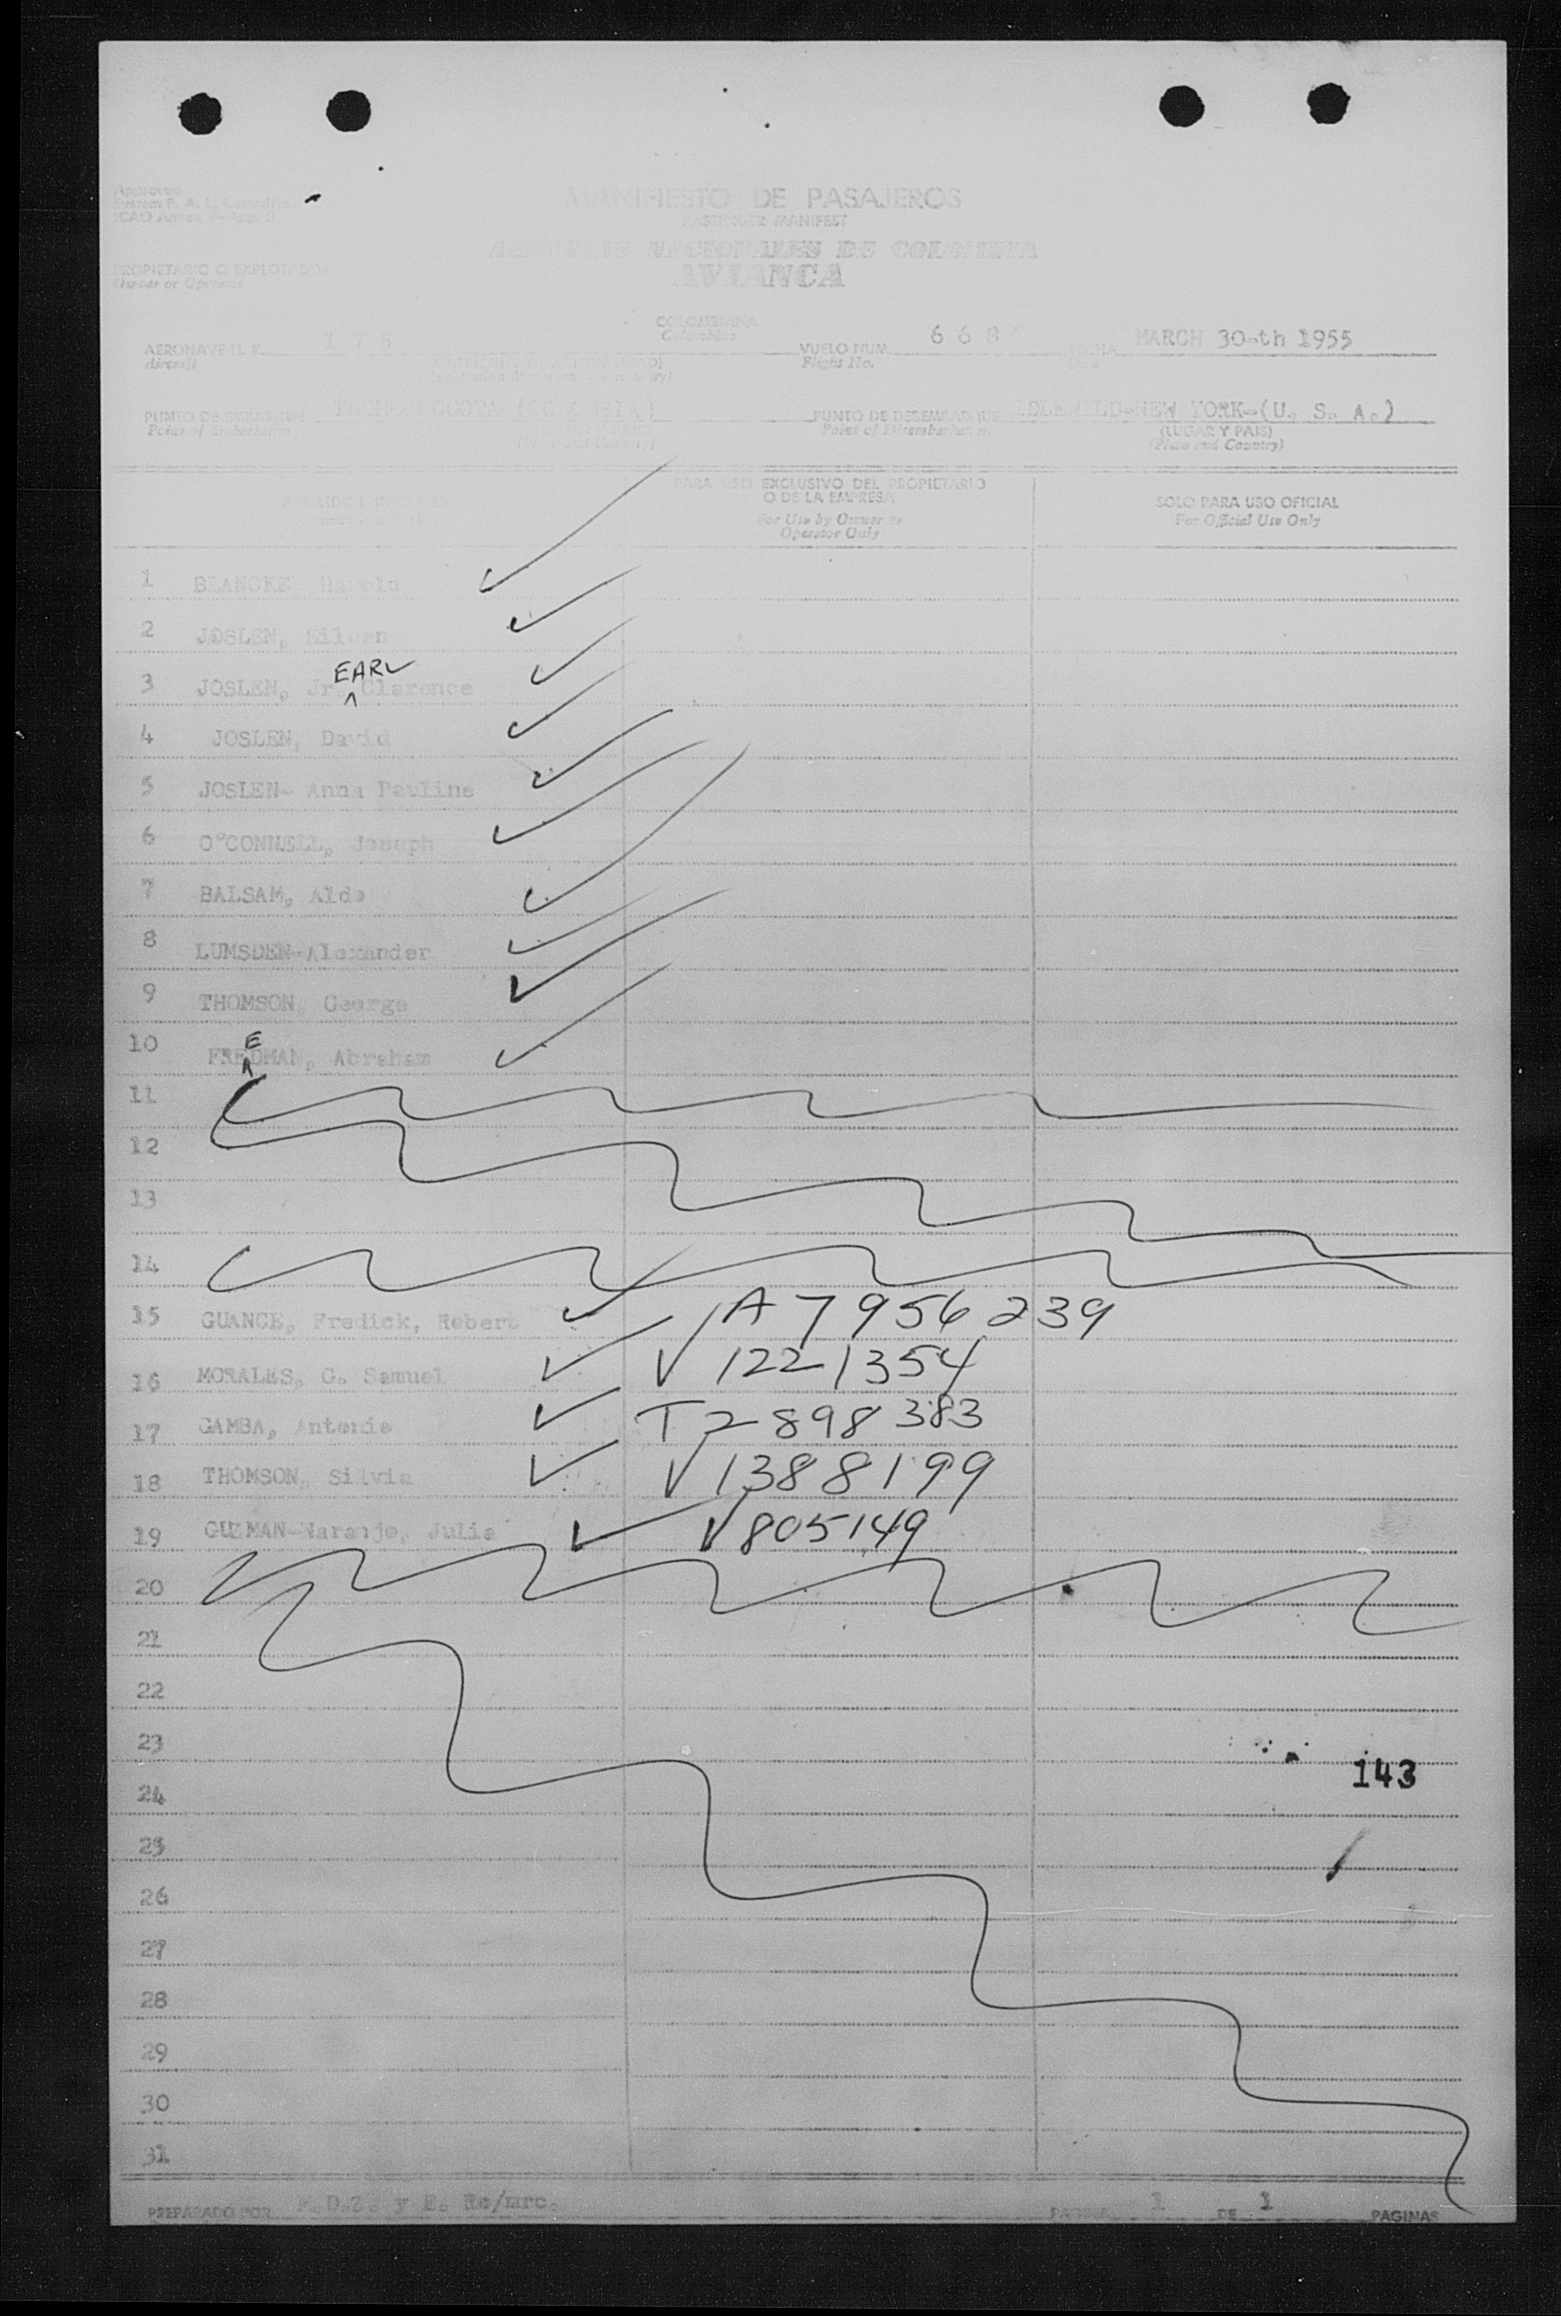 MANIFIESTO DE PASAJEROS
PASSENGER MANIFEST
NACIONALES DE COLOMBIA
AVIANCA
PROPIETARIO O EXPLOTADOR
Owner or Operator
COLOMBIANA
Colombian
AERONAVE 1 7 6 VUELO NUM. 6 6 8 MARCH 30-th 1955
Aircraft Flight No.
PUNTO DE PUNTO DE DESEMBARQUE IDLEWILD-NEW YORK-(U. S. A.)
Point of Point of (LUGAR Y PAIS)
(Place and Country)
PARA USO EXCLUSIVO DEL PROPIETARIO
O DE LA EMPRESA
For Use by Owner or
Operator Only
SOLO PARA USO OFICIAL
For Official Use Only
1 BLANCKE Harold
2 JOSLEN, Eileen
EARL
3 JOSLEN, Jr. Clarence
4 JOSLEN, David
5 JOSLEN- Anna Pauline
6 O'CONNELL, Joseph
7 BALSAM, Aldo
8 LUMSDEN-Alexander
9 THOMSON, George
E
10 FREDMAN, Abraham
11
12
13
14
15 GUANCE, Fredick, Robert A7956239
16 MORALES, G. Samuel V1221354
17 GAMBA, Antonio T2898383
18 THOMSON, Silvia V1388199
19 GUZMAN-Naranjo, Julia V805149
20
21
22
23
143
24
25
26
27
28
29
30
31
PREPARADO POR y PAGINA 1 DE 1 PAGINAS